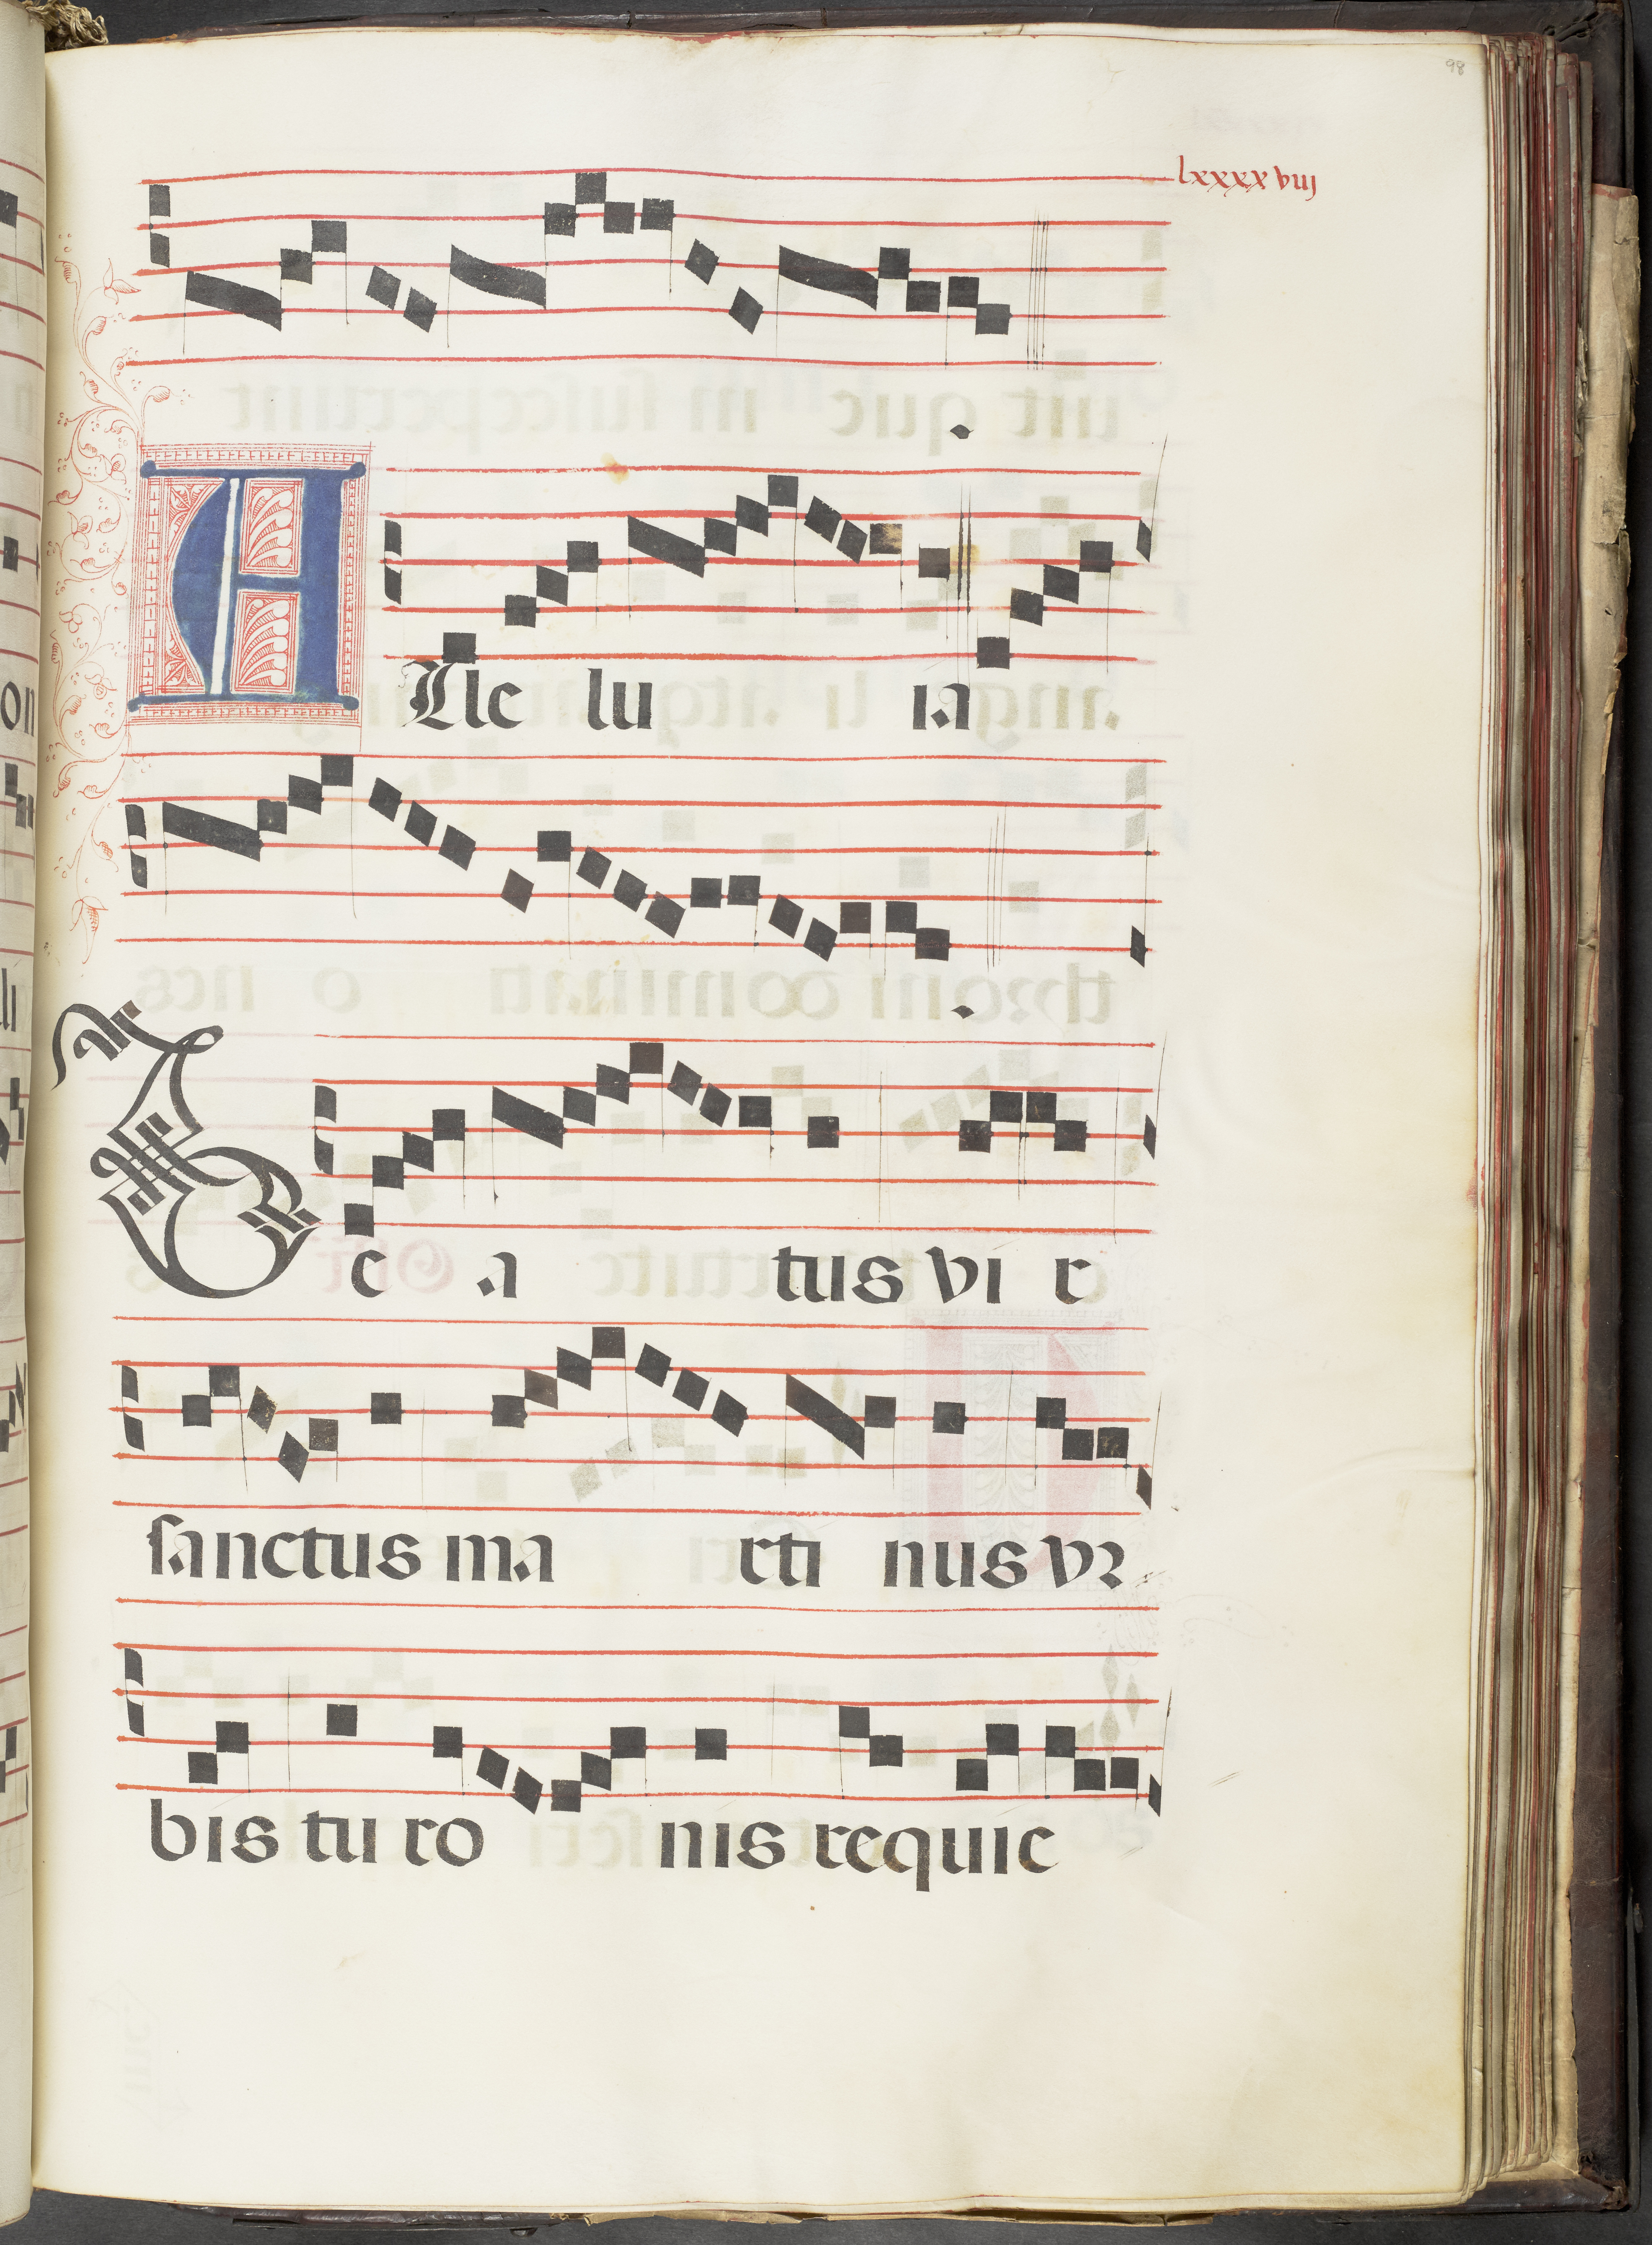 98
lxxxxviij
ALle lu ia
Be a tus vi r
sanctus ma rti nus vr
bis tu ro nis requie